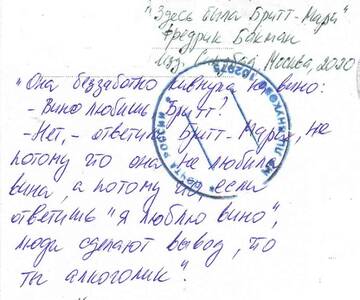 "Здесь была Бритт-Мари"
Фредрик Бакман
Изд. Синдбад Москва, 2020
"Она беззаботно кивнула на вино:
- Вино любишь, Бритт?
- Нет, - ответила Бритт-Мари, не
потому что она не любила
вина, а потому что, если
ответишь "я люблю вино",
люди сделают вывод, что
ты алкоголик".
ПОЧТА РОССИИ
102975